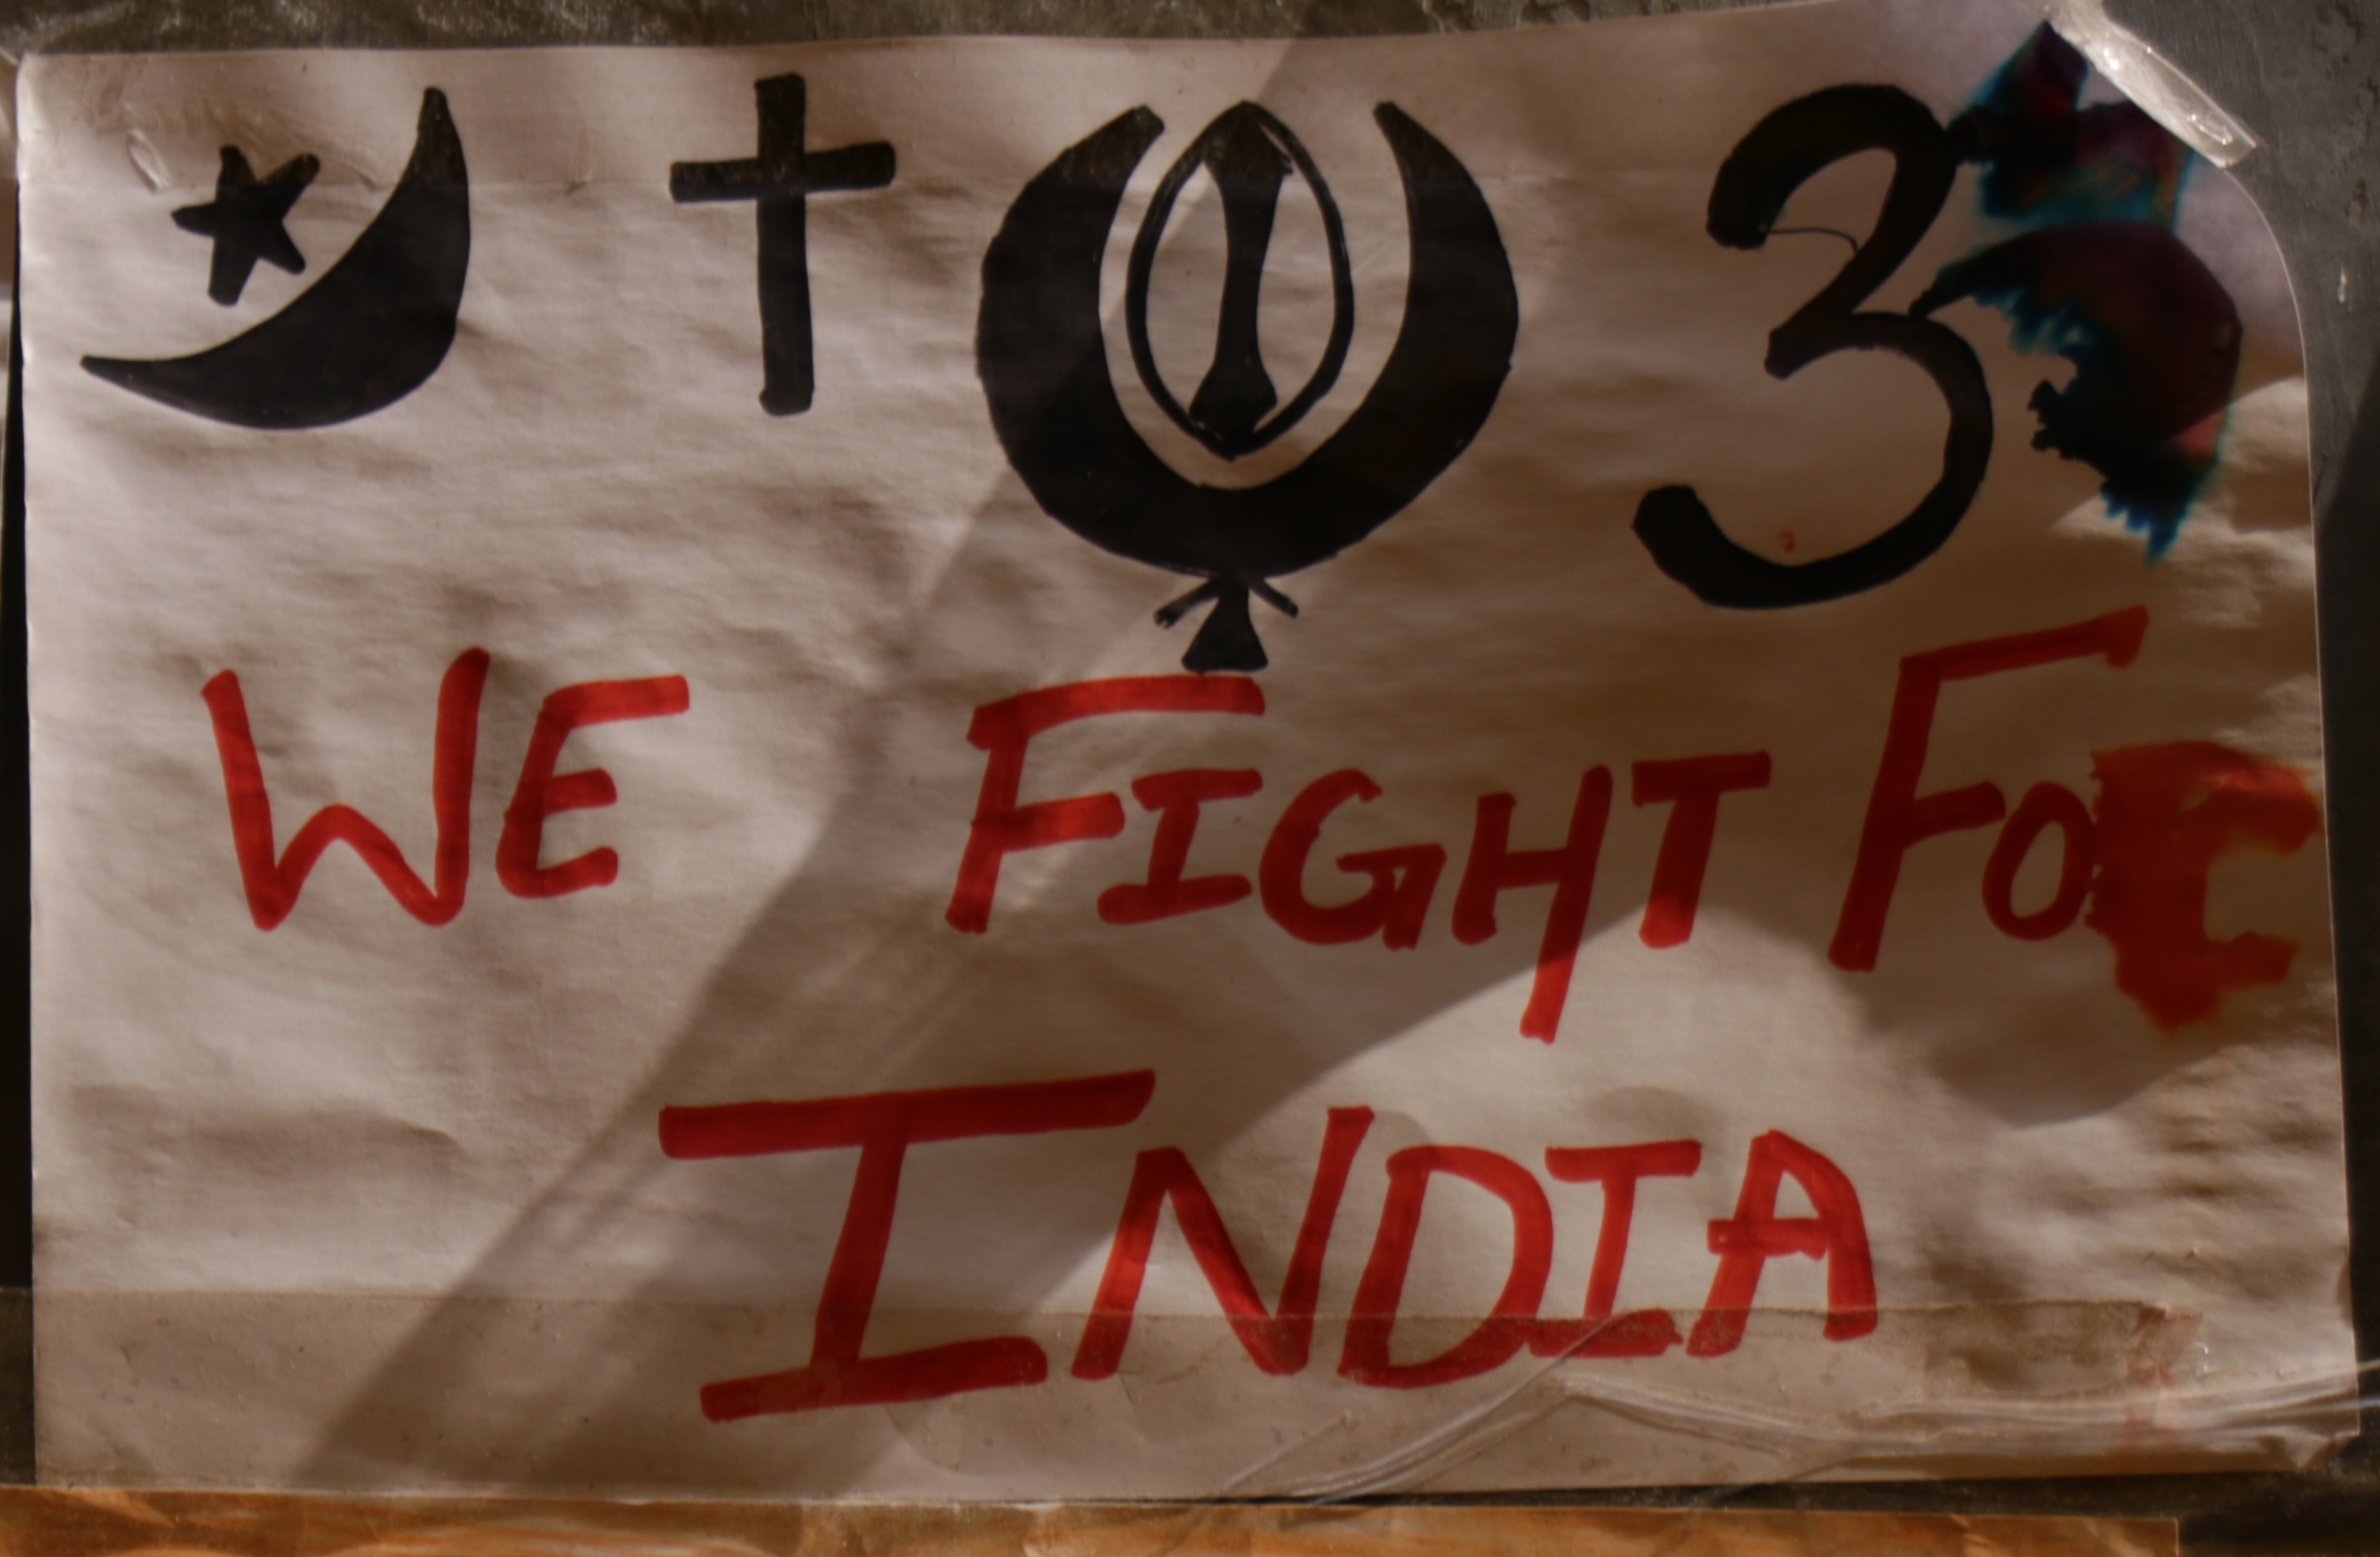 ॐ
WE FIGHT FOR
INDIA